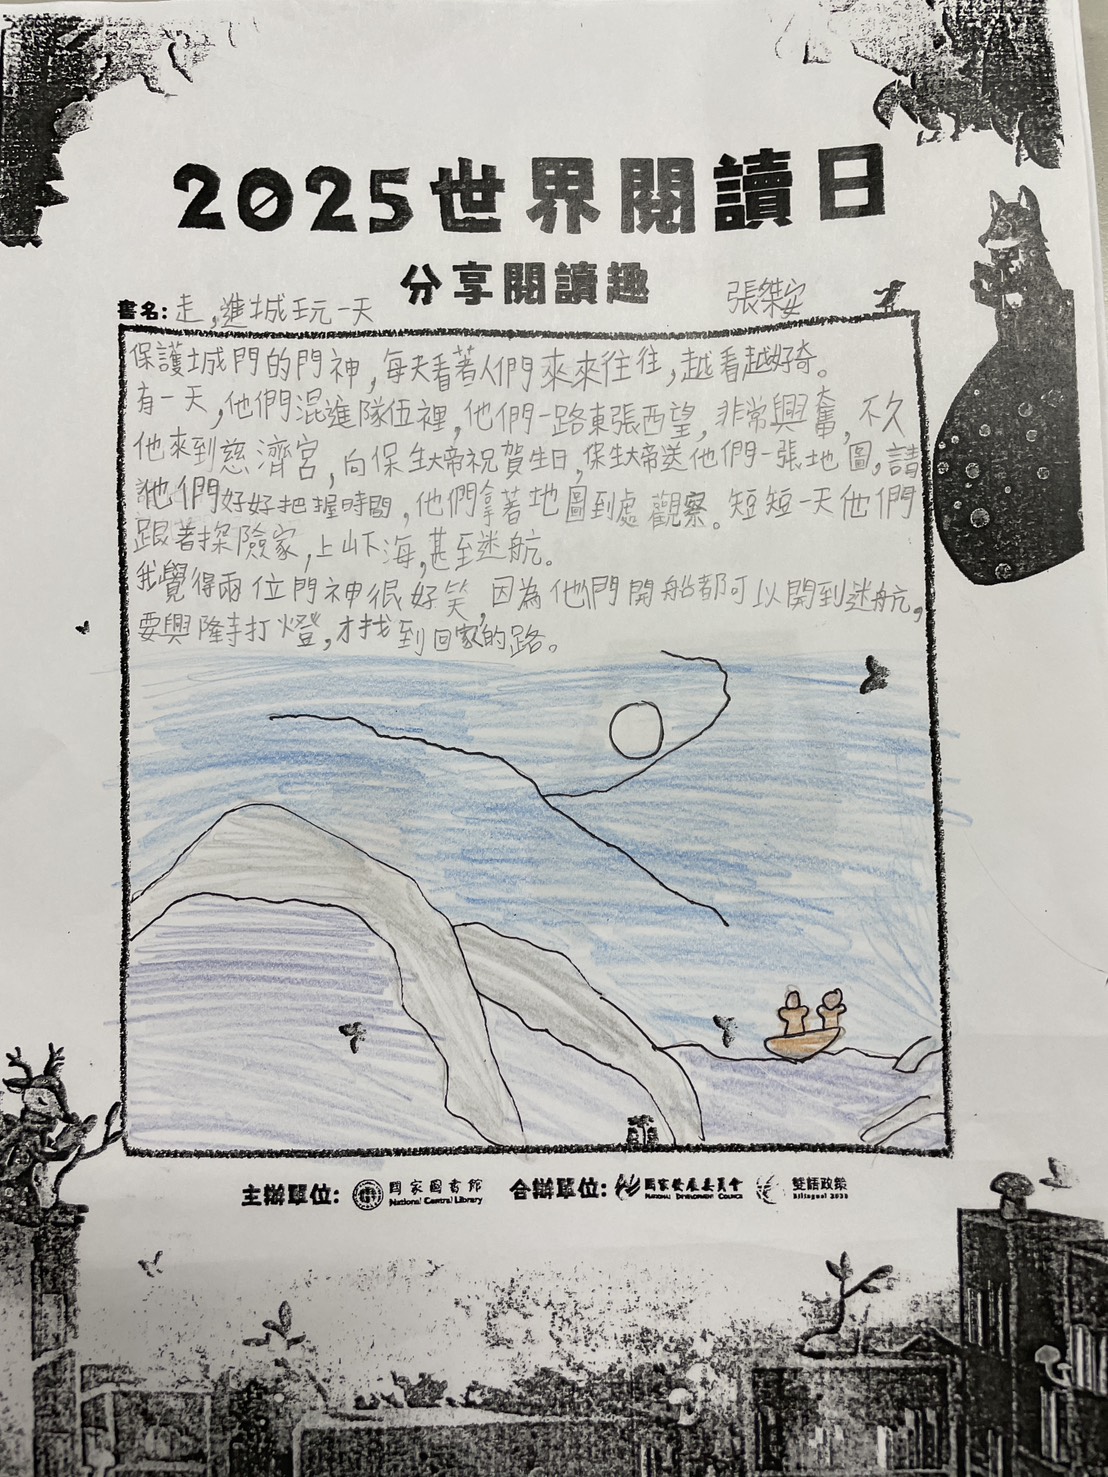 2025世界閱讀日
分享閱讀趣
書名:走,進城玩一天
張桀安
保護城門的門神,每天看著人們來來往往,越看越好奇。
有一天,他們混進隊伍裡,他們一路東張西望,非常興奮,不久
他來到慈濟宮,向保生大帝祝賀生日,保生大帝送他們一張地圖,請
他們好好把握時間,他們拿著地圖到處觀察。短短一天他們
跟著探險家,上山下海,甚至迷航。
我覺得兩位門神很好笑,因為他們開船都可以開到迷航,
要興隆寺打燈,才找到回家的路。
主辦單位: 國家圖書館 National Central Library 合辦單位: 國家發展委員會 NATIONAL DEVELOPMENT COUNCIL 雙語政策 Bilingual 2030